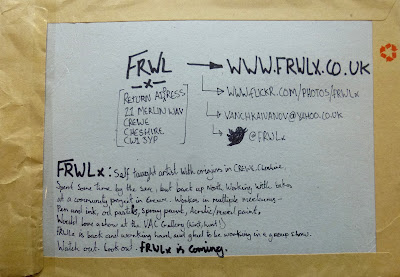 FRWL → WWW.FRWLX.CO.UK
-x-
RETURN ADDRESS
22 MERLIN WAY
CREWE
CHESHIRE
CW1 3YP
WWW.FLICKR.COM/PHOTOS/FRWLx
VANCHKAIVANOV@YAHOO.CO.UK
@FRWLx
FRWLx: Self taught artist with origins in CREWE. Cheshire.
Spent some time by the sea, but back up North. Working with
at a community project in Crewe. Works in multiple mediums -
Pen and ink, oil pastels, spray paint, Acrylic/mural paint,
Would love a show at the VAC Gallery (hint, hint!)
FRWLx is back and working hard, and glad to be working in a group show.
Watch out. Look out. FRWLx is coming.